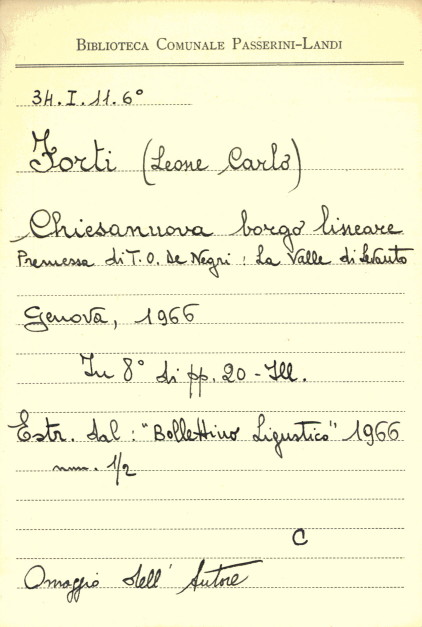 BIBLIOTECA COMUNALE PASSERINI-LANDI
34. I. 11. 6°
Forti (Leone Carlo)
Chiesanuova borgo lineare
Premessa di T. O. De Negri : La Valle di Levanto
Genova, 1966
In 8° di pp. 20 - Ill.
Estr. dal : "Bollettino Ligustico" 1966
num. 1/2
C
Omaggio dell' Autore